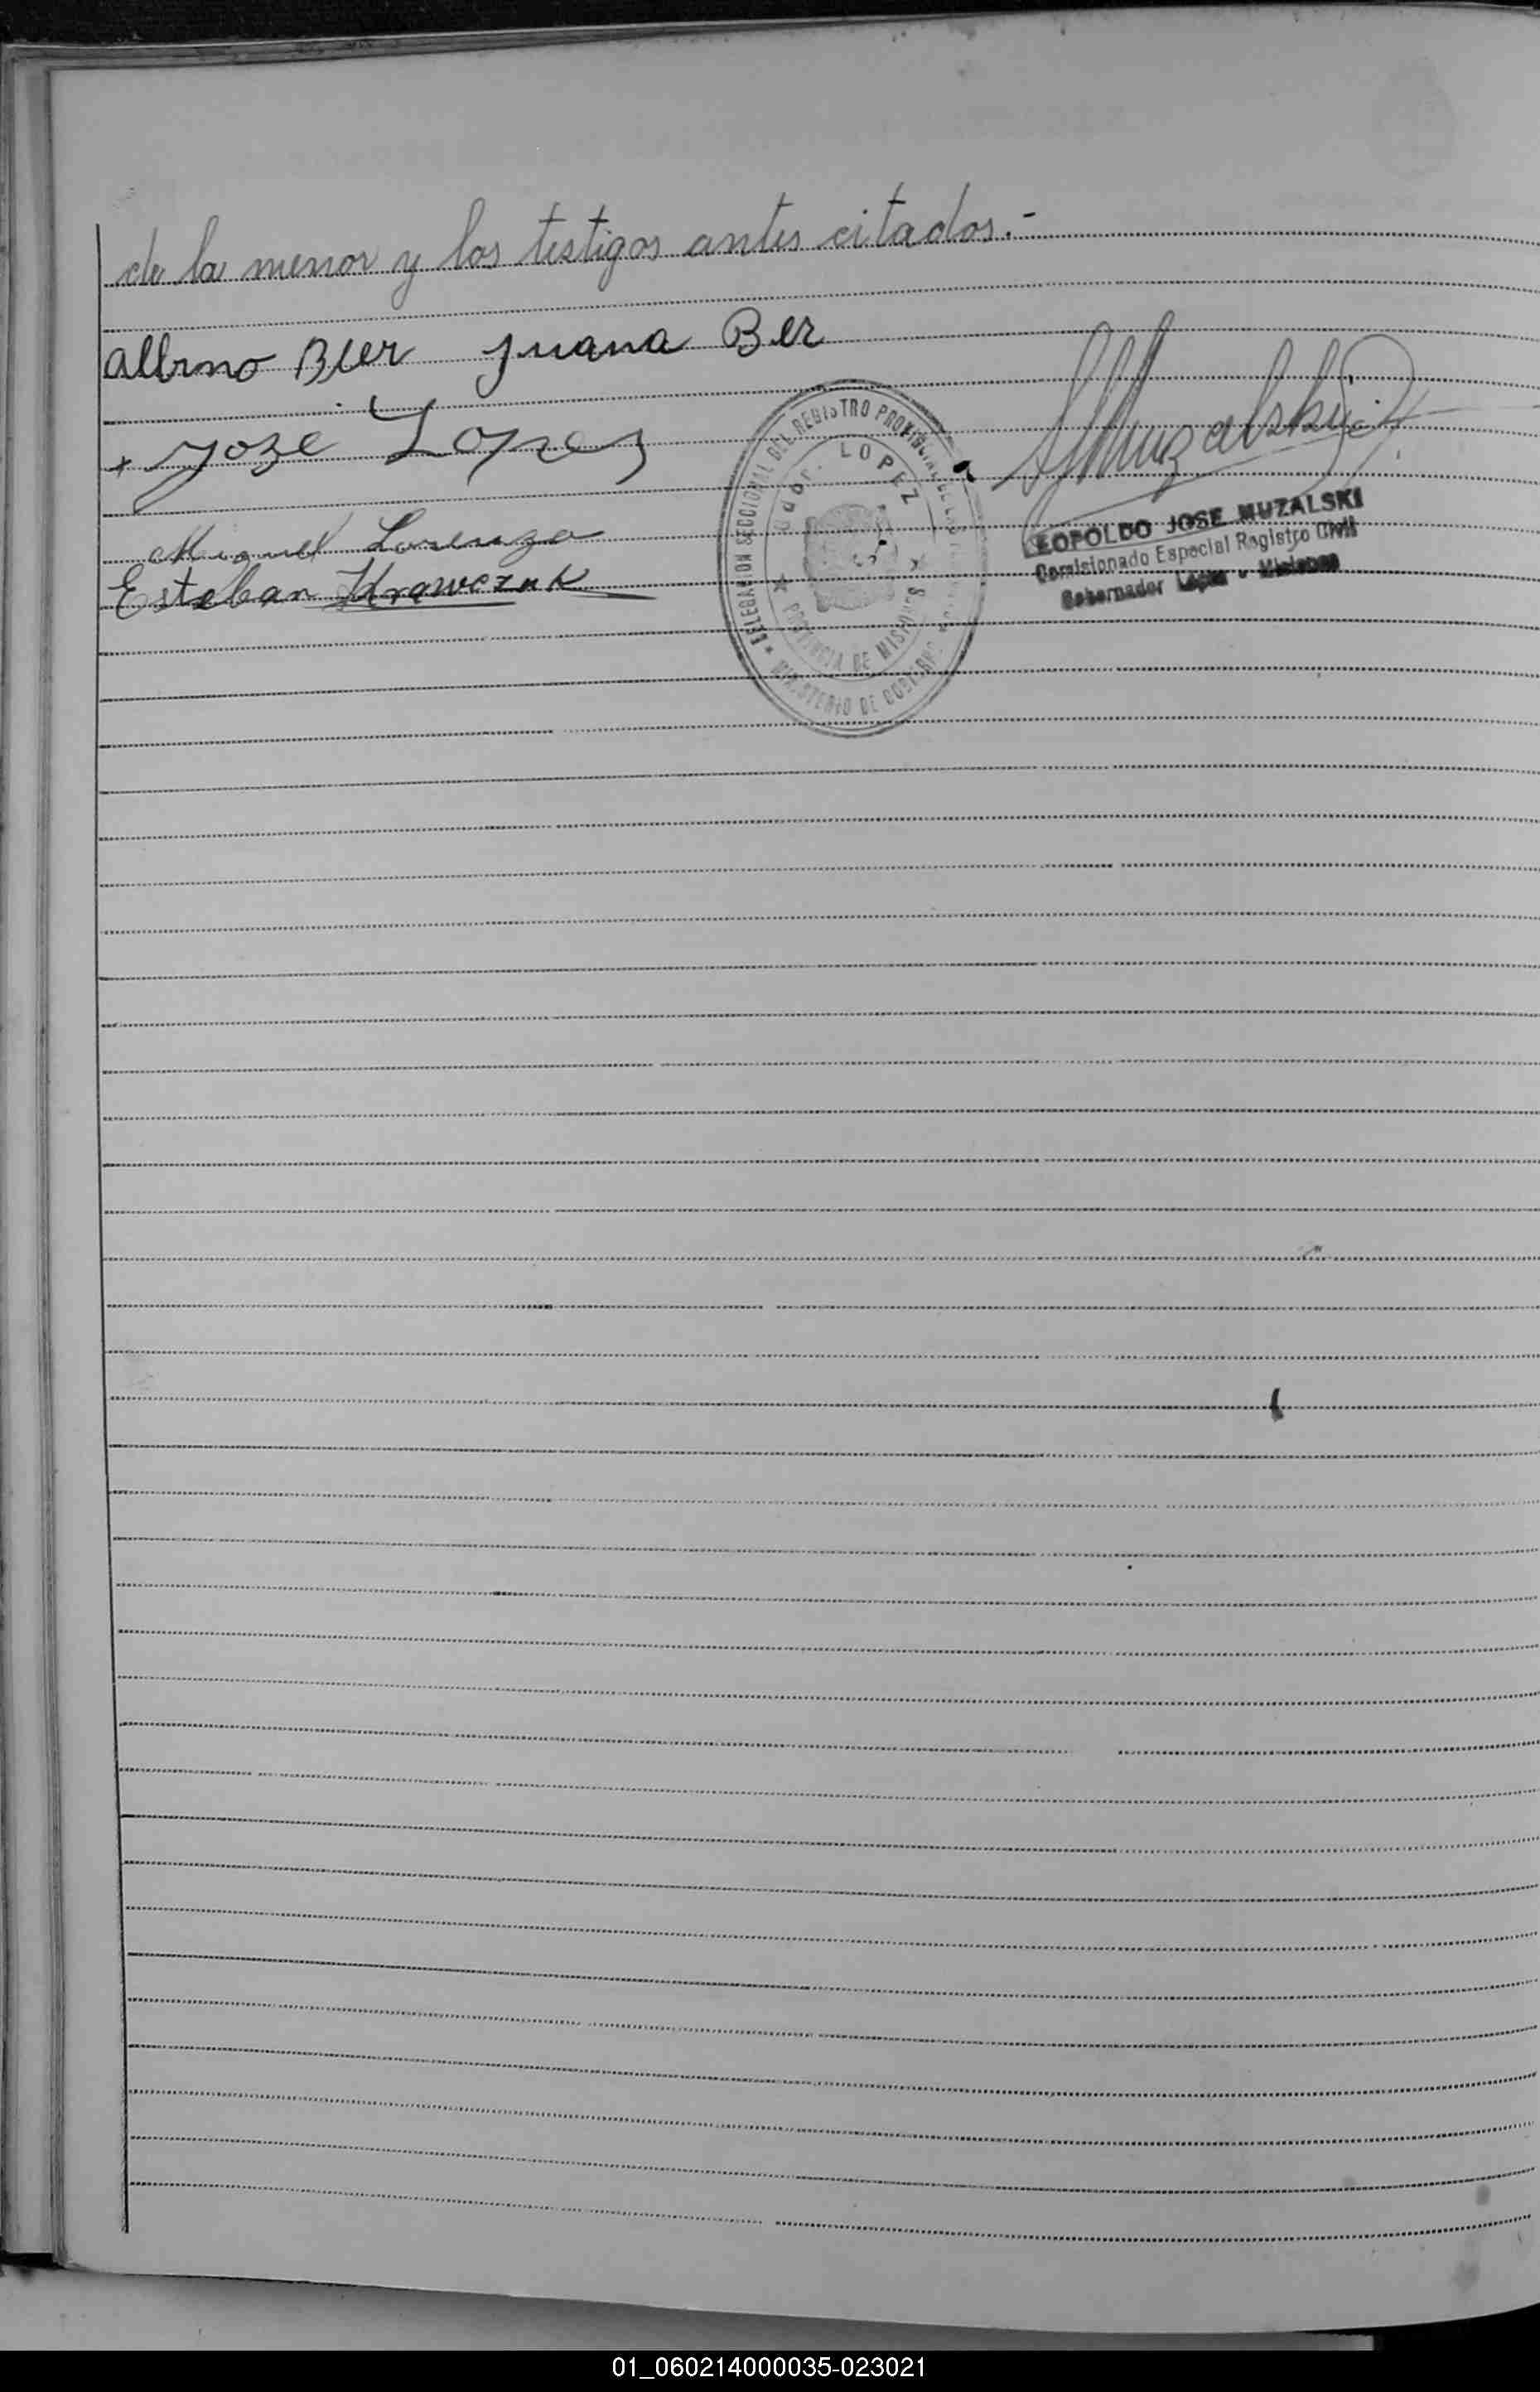 de la menor y los testigos antes citados.-
Albino Bier Juana Ber
+ Jose Lopez
Miguel Lorenzo
Esteban Krawczuk
DELEGACION SECCIONAL DEL REGISTRO PROVINCIAL DE LAS PERSONAS
Gdor. LOPEZ
PROVINCIA DE MISIONES
MINISTERIO DE GOBIERNO
LMuzalski
LEOPOLDO JOSE MUZALSKI
Comisionado Especial Registro Civil
Gobernador López - Misiones
01_060214000035-023021